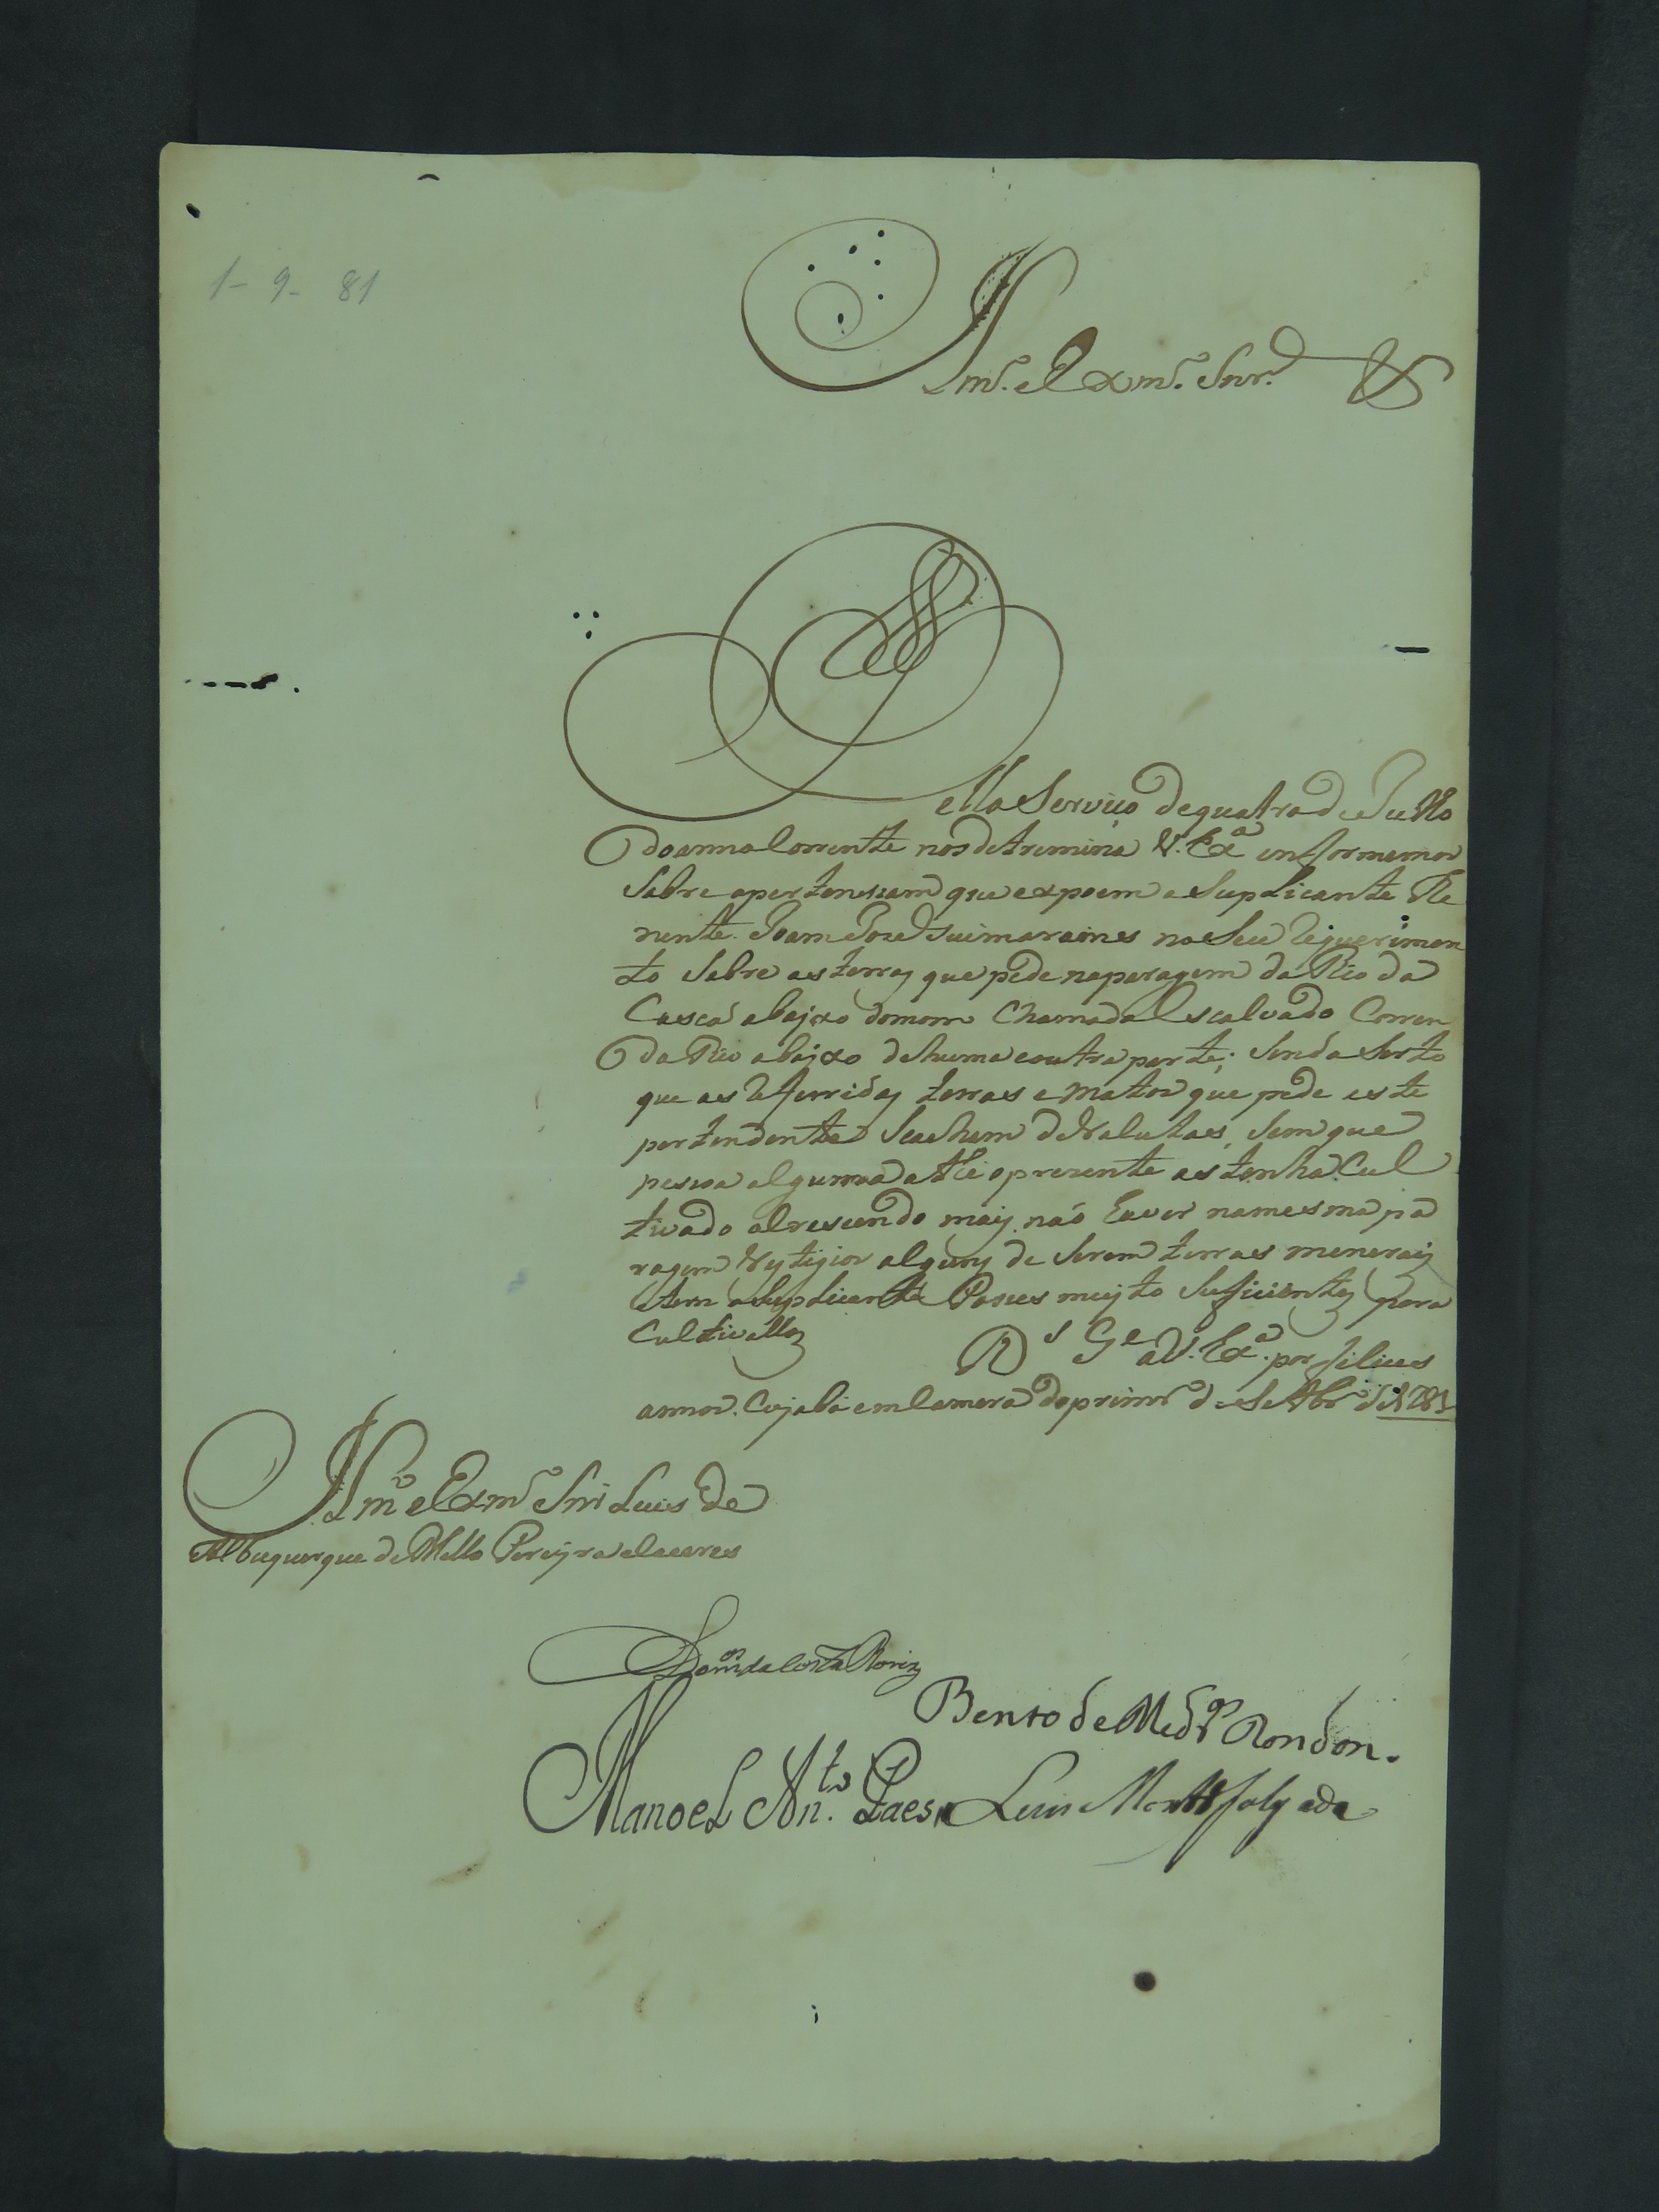 1-9-81
Illmº. e Exmº. Snr.
Pella Serviço de quatro de Julho
do anno Corrente nos detremina V. Exª. informemos
Sobre apertenssam que expoem o Suplicante The
nente Joam Joze Guimaraines no Seu Requerimen
to Sobre as terras que pede naparagem do Rio da
Casca abajxo domorro Chamado Escalvado Corren
do Rio abajxo de huma e outra parte; Sendo Serto
que as Referridas terras e mattos que pede este
pertendente Se acham devalutas, Sem que
pessoa alguma athe o prezente as tenha Cul
tivado acrescendo mais não haver namesma pa
ragem Vestigios alguns de Serem terras menerais
e tem o Suplicante Posses muyto Suficientes para
Cultivallas
Ds. Ge. a V. Exª. por felices
annos. Cujaba em Camera do primrº de Setbrº de 1781
Illmº e Exmº Snr Luis de
Albuquerque de Mello Pereyra e Caceres
Domºs da Costa
Bento de Medrºs Rondon.
Manoel Antº. Paes
Luis